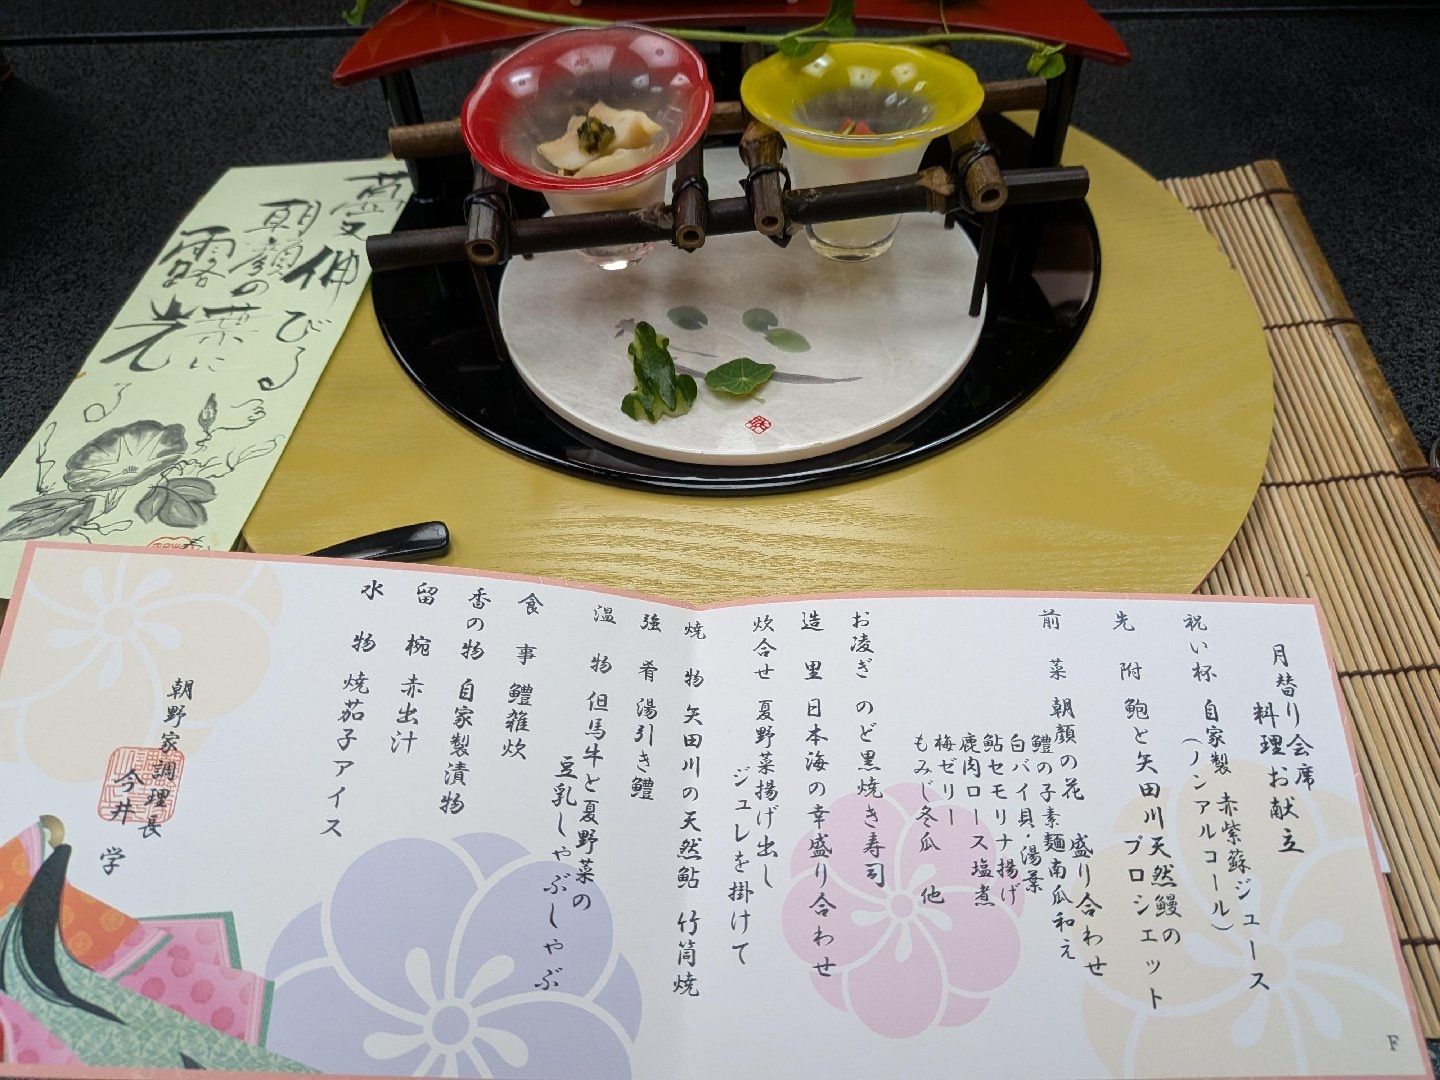 蔓伸びる
朝顔の葉に
露光る
月替り会席
料理お献立
祝い杯 自家製 赤紫蘇ジュース
(ノンアルコール)
先附 鮑と矢田川天然鰻の
プロシェット
前菜 朝顔の花 盛り合わせ
鱧の子素麺南瓜和え
白バイ貝・湯葉
鮎セモリナ揚げ
鹿肉ロース塩煮
梅ゼリー
もみじ冬瓜 他
お凌ぎ のど黒焼き寿司
造里 日本海の幸盛り合わせ
炊合せ 夏野菜揚げ出し
ジュレを掛けて
焼物 矢田川の天然鮎 竹筒焼
強肴 湯引き鱧
温物 但馬牛と夏野菜の
豆乳しゃぶしゃぶ
食事 鱧雑炊
香の物 自家製漬物
留椀 赤出汁
水物 焼茄子アイス
朝野家調理長
今井 学
F